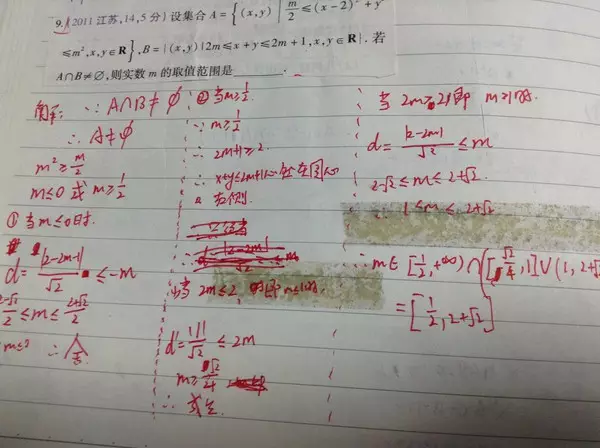 9. (2011 江苏,14,5 分) 设集合 A = { (x,y) | m/2 ≤ (x-2)² + y²
≤ m², x,y∈R }, B = {(x,y) | 2m ≤ x+y ≤ 2m+1, x,y∈R}. 若
A∩B≠∅,则实数 m 的取值范围是
∵ A∩B≠∅
∴ A≠∅
m² ≥ m/2
m≤0 或 m≥1/2
① 当 m≤0时.
d = |2-2m-1|/√2 ≤ -m
2-√2/2 ≤ m ≤ 2+√2/2
m≤0 ∴
② 当 m≥1/2.
∵ m≥1/2
∴ 2m+1≥2.
∴ x+y≤2m+1 在圆心
右侧
当 2m≤2, 即 m≤1时.
d = |1|/√2 ≤ 2m
m≥ √2/4
∴
当 2m>2 即 m>1时.
d = |2-2m|/√2 ≤ m
2-√2 ≤ m ≤ 2+√2
∴ 1≤m≤2+√2
∴ m∈[1/2,+∞)∩([√2/4,1]∪(1,2+√2
= [1/2, 2+√2]